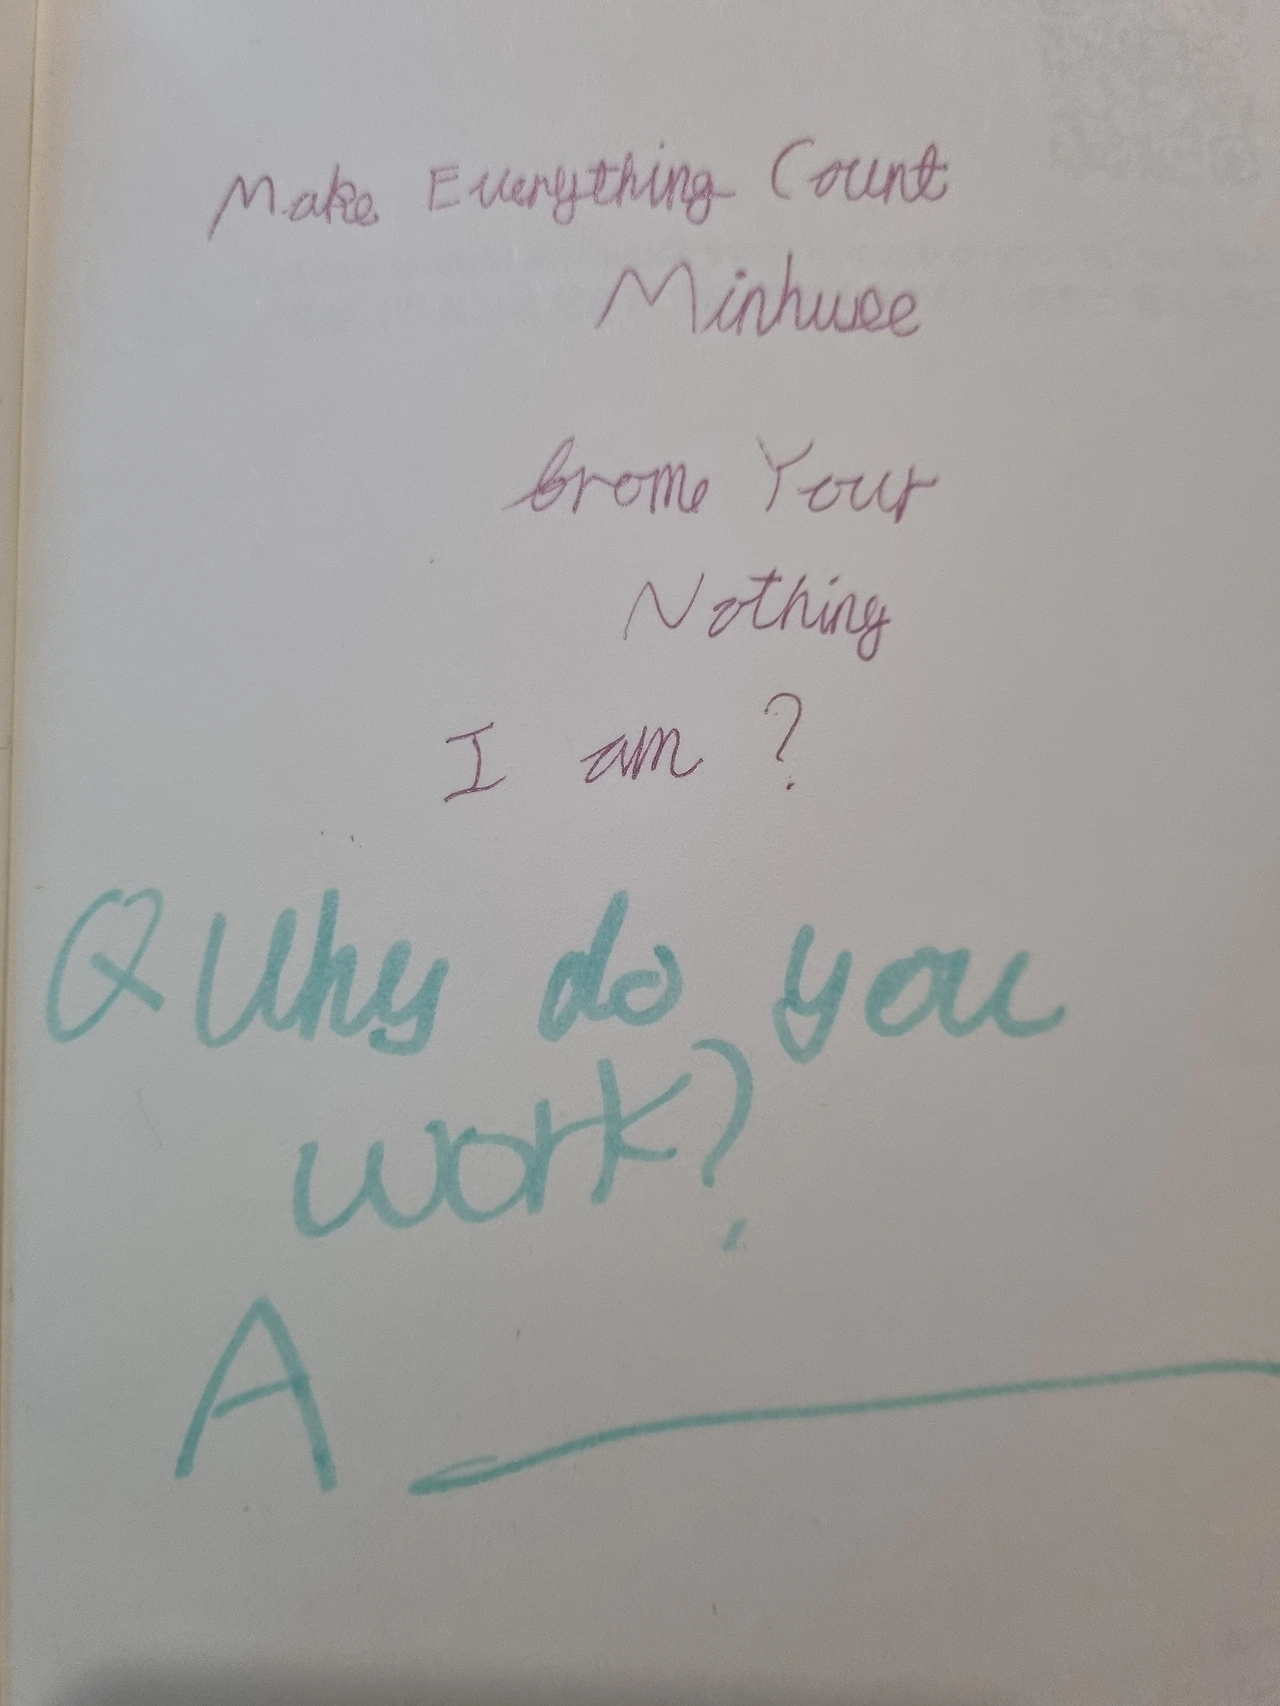 Make Everything Count
Minhwee
Your
Nothing
I am ?
Q Why do you
work?
A